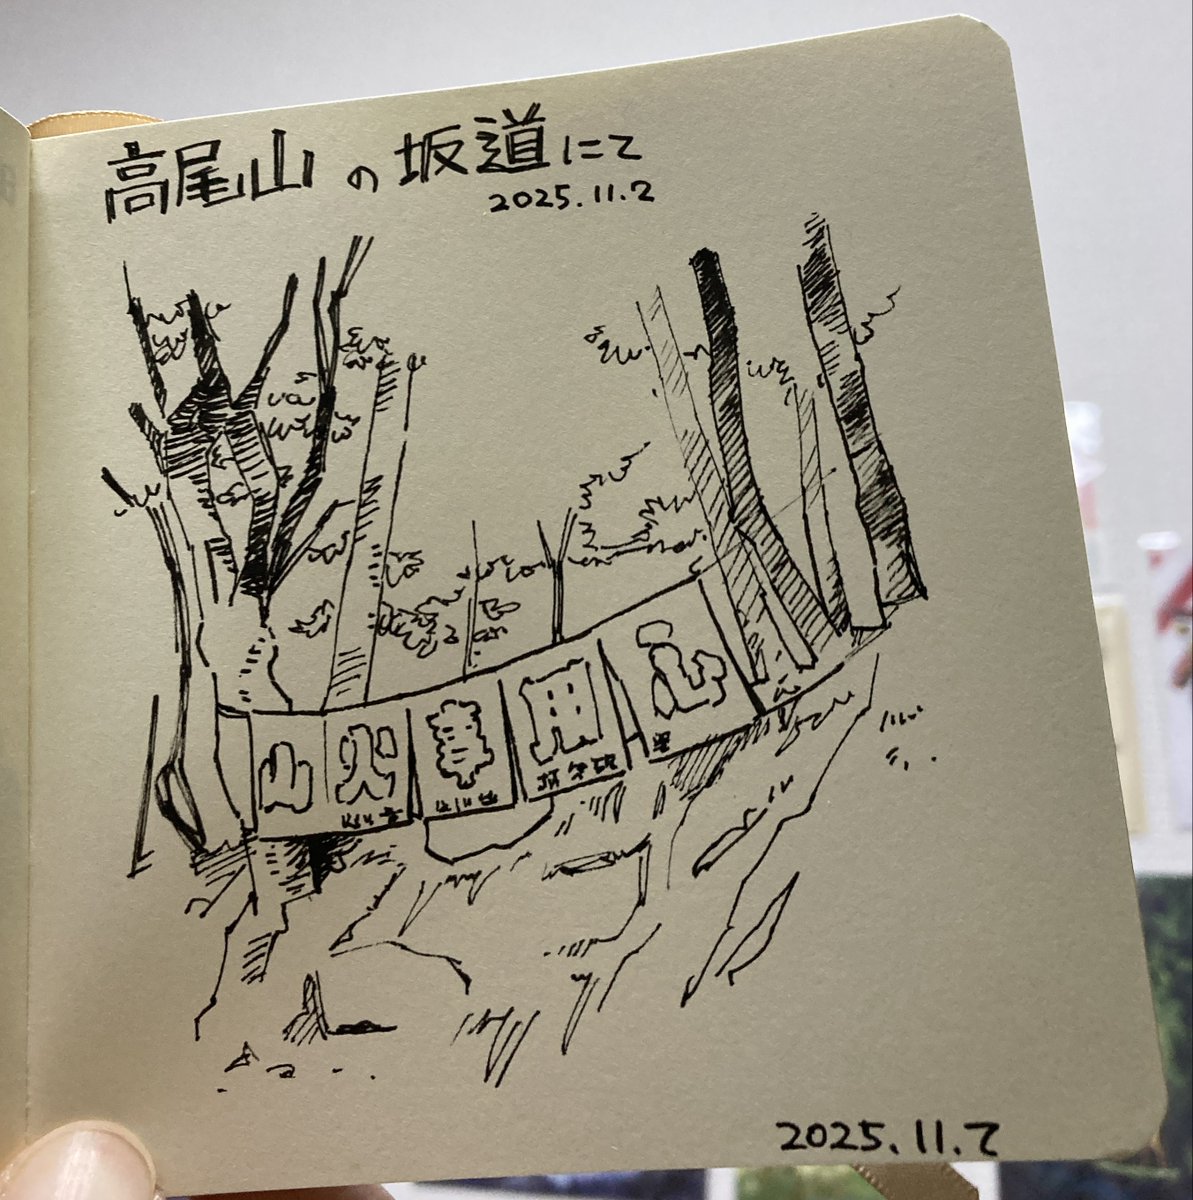 高尾山の坂道にて
2025.11.2
山火事用心
2025.11.2